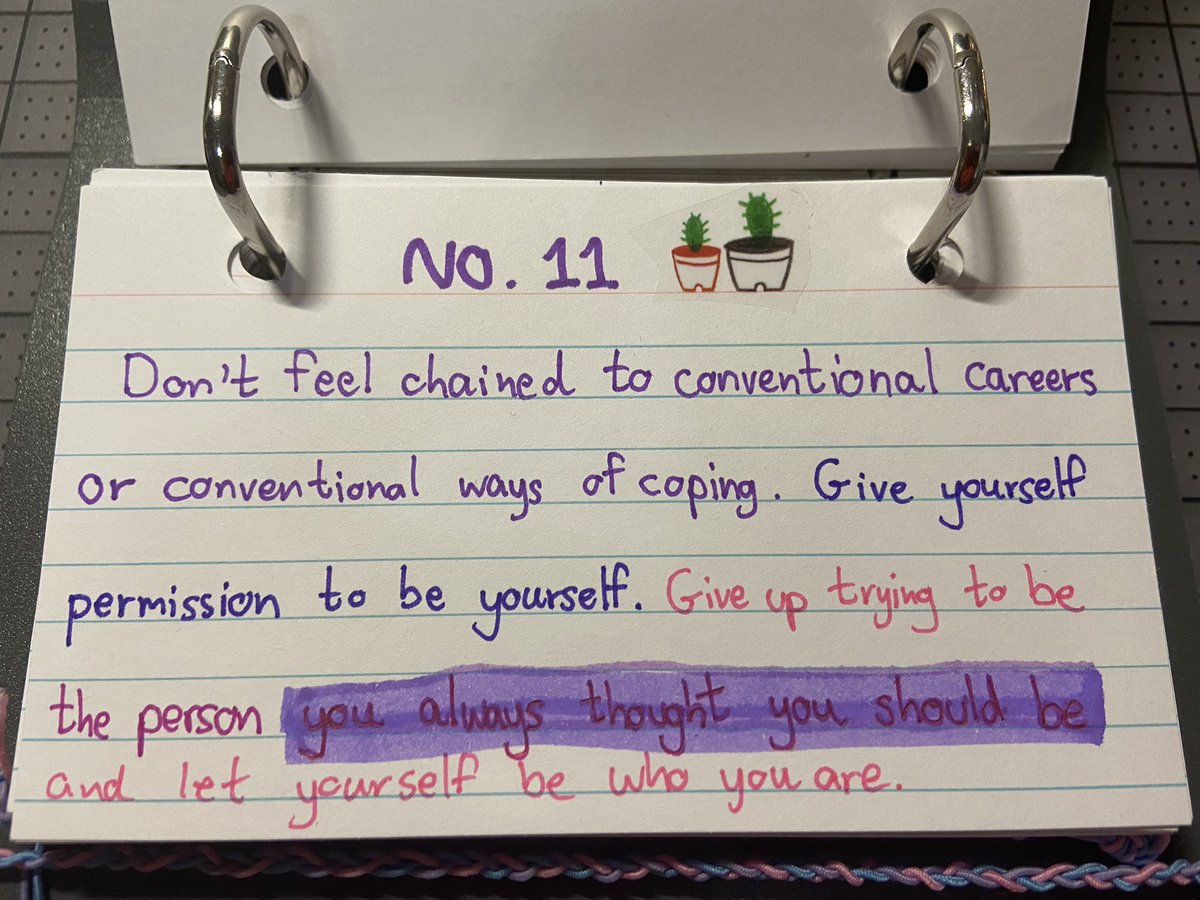 No. 11
Don't feel chained to conventional careers
or conventional ways of coping. Give yourself
permission to be yourself. Give up trying to be
the person you always thought you should be
and let yourself be who you are.